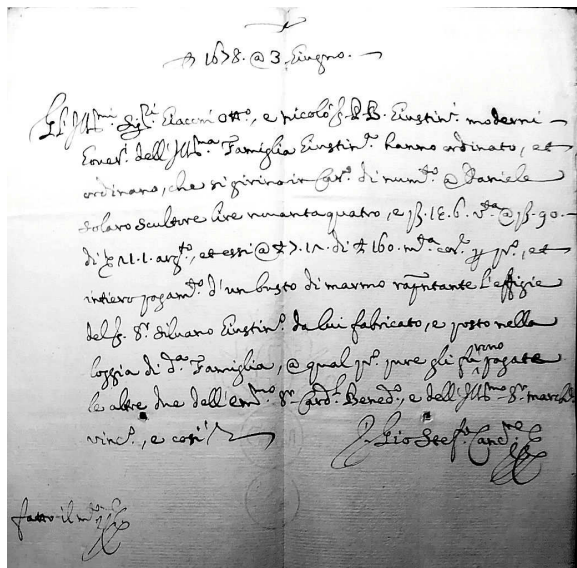 1678. @ 3. Giugno.
Gl'Ill.mi Sig.ri Giacom Ott.o, e Nicolò q. Giustin.i moderni
Gover.i dell'Ill.ma Famiglia Giustin.a hanno ordinato, et
ordinano, che si girino in Car.o di num.to @ Daniele
Solaro scultore lire novanta quatro, e 90
di arg.to, et essi @ di 160. m.ta cor. p pr.o, et
intiero pagam.to d'un busto di marmo rap.ntante l'effigie
del q. Sr. Silvano Giustin.o da lui fabricato, e posto nella
loggia di d.a Famiglia, @ qual pr.o pure gli pagate
le altre due dell'em.mo Sr. Card.l Bened.o, e dell'Ill.mo Sr. march.e
vinc.o, e così
Gio Stef.o Canc.re
fatto il m.to